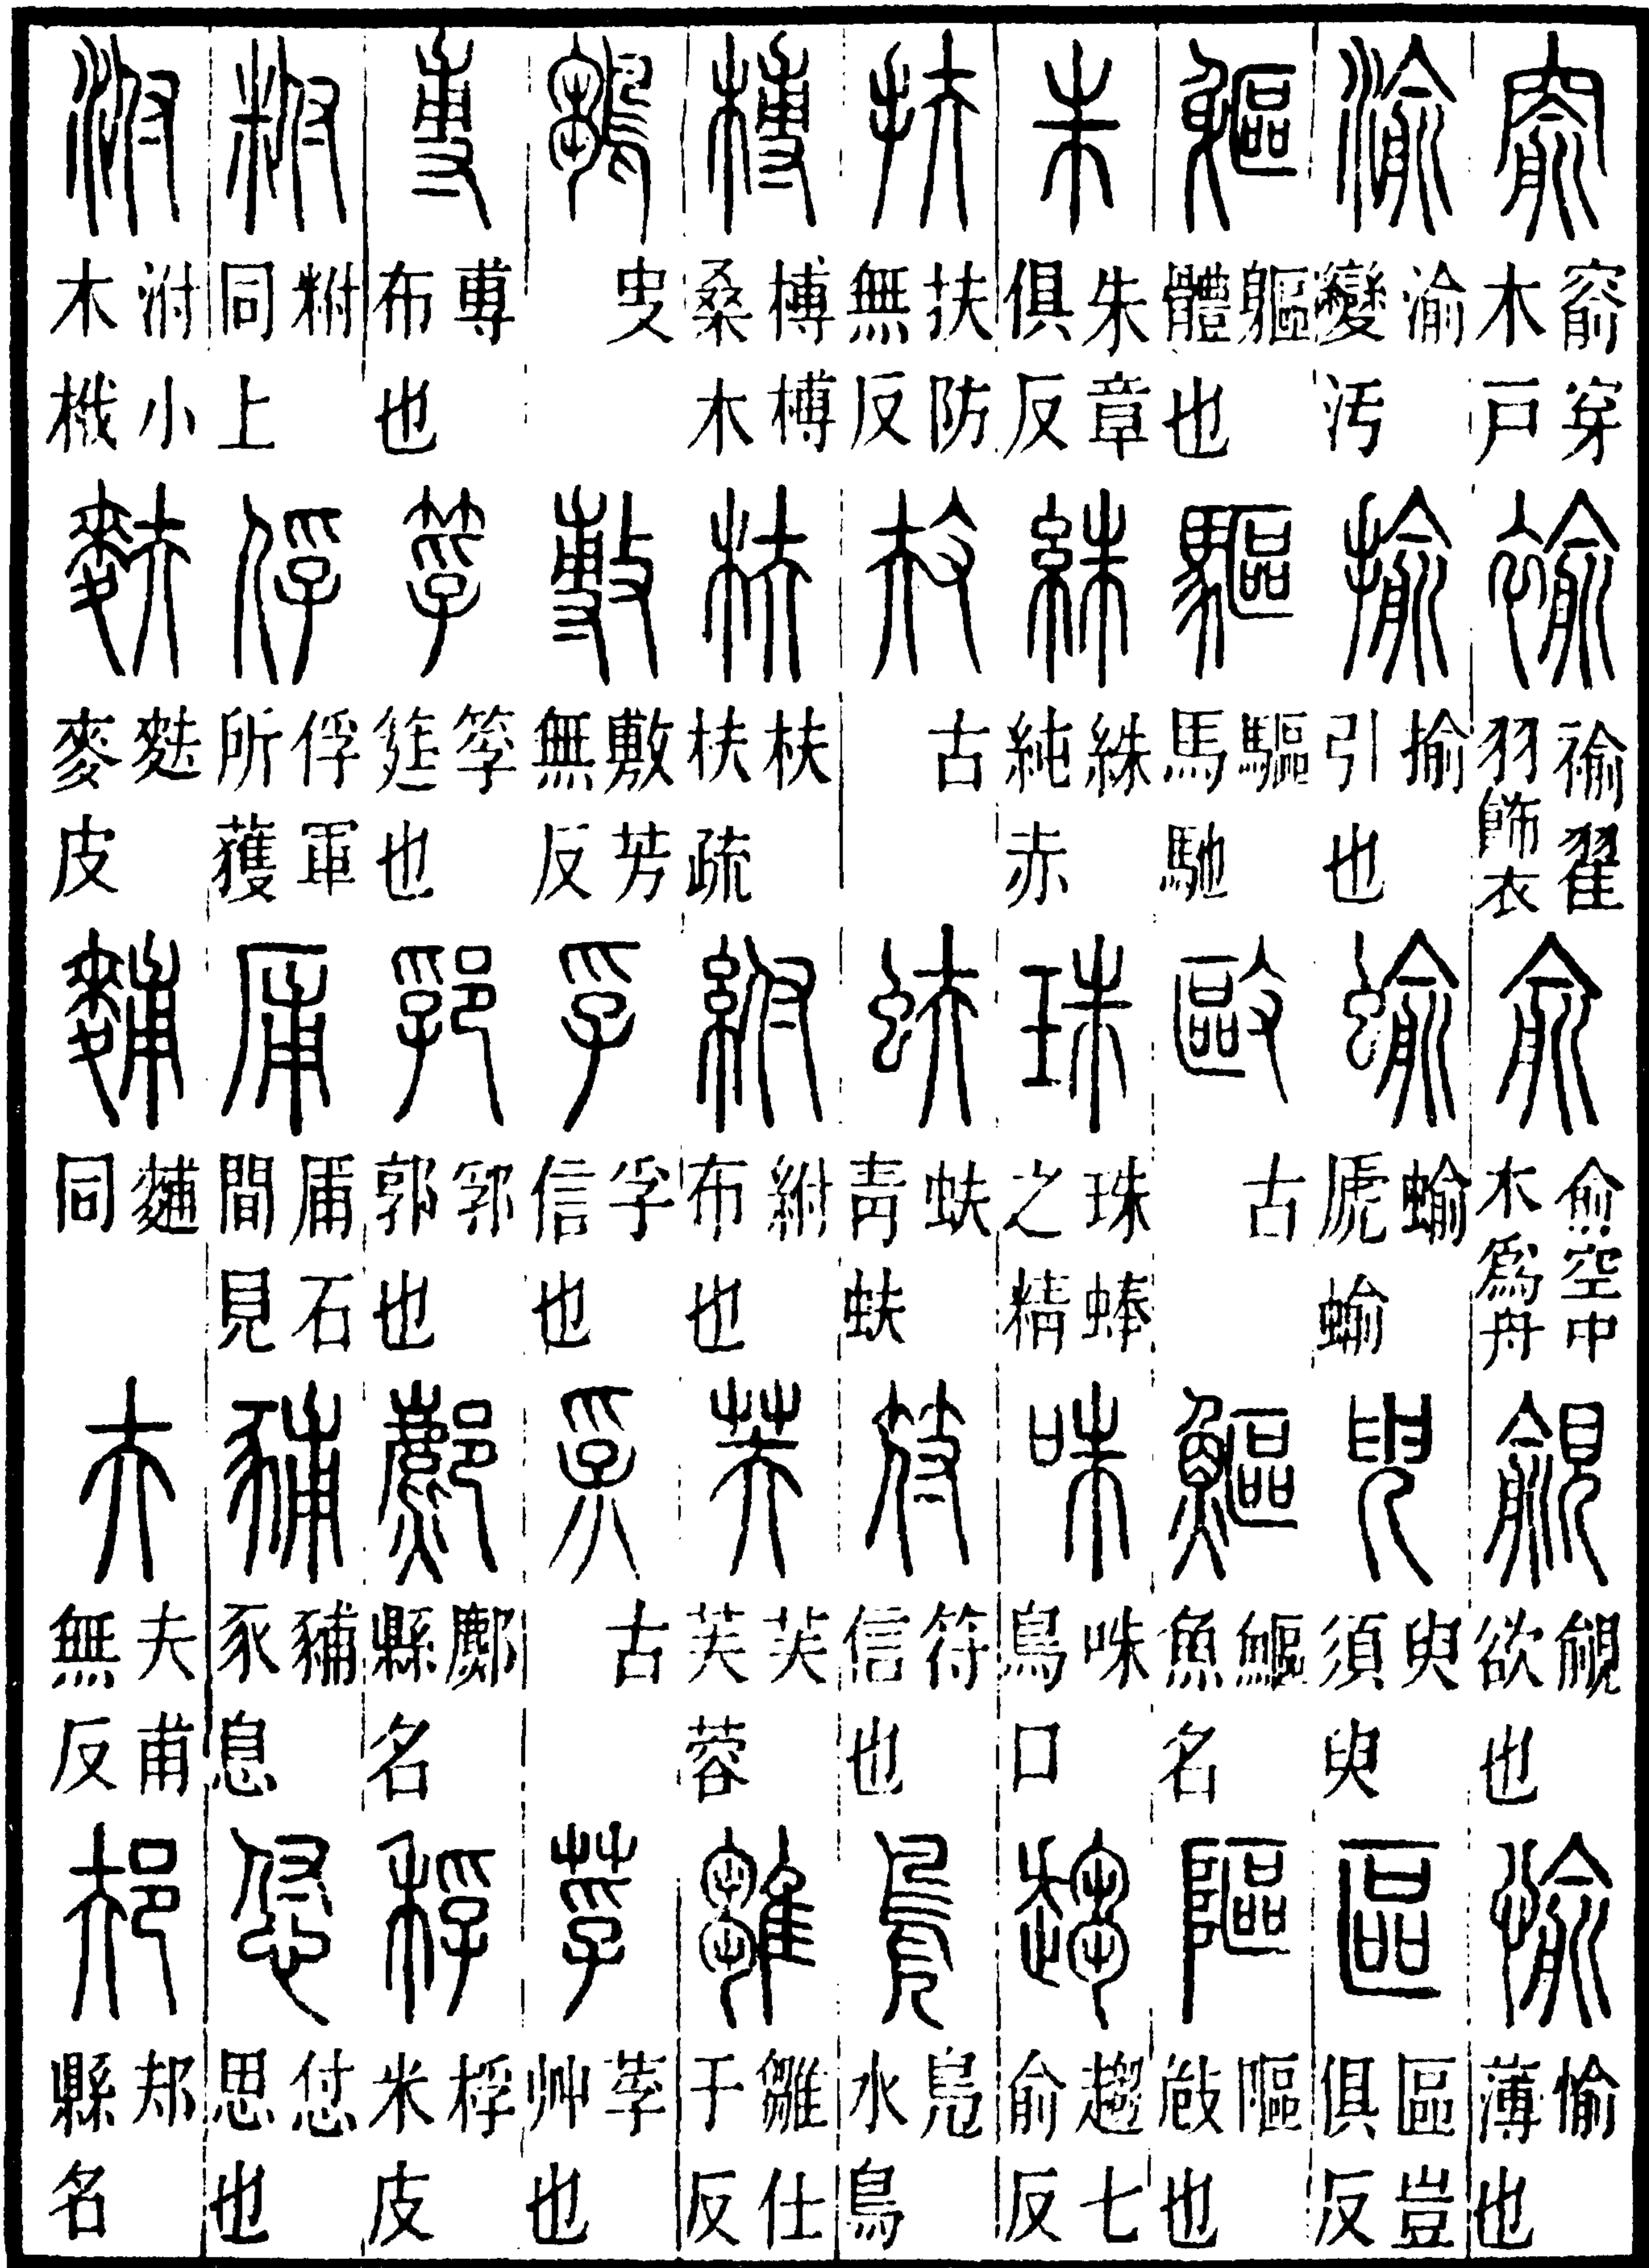 窬 窬穿木戶 褕 褕翟羽飾衣 俞 俞空中木爲舟 覦 覦欲也 愉 愉薄也
渝 渝變汚 揄 揄引也 蝓 蝓虒蝓 臾 臾須臾 區 區豈俱反
軀 軀體也 驅 驅馬馳 敺 古 鰸 鰸魚名 䧢 䧢敧也
朱 朱章俱反 絑 絑純赤 珠 珠蜯之精 咮 咮鳥口 趨 趨七俞反
扶 扶防無反 古 蚨 蚨青蚨 符 符信也 鳧 鳧水鳥
榑 榑榑桑木 枎 枎扶疏 紨 紨布也 芙 芙芙蓉 雛 雛仕于反
鶵 史 敷 敷芳無反 孚 孚信也 古 莩 莩艸也
尃 尃布也 筟 筟筳也 郛 郛郭也 鄜 鄜縣名 稃 稃米皮
同上 俘 俘軍所獲 庯 庯石間見 豧 豧豕息 怤 怤思也
泭 泭小木栰 麩 麩麥皮 同 夫 夫甫無反 邞 邞縣名